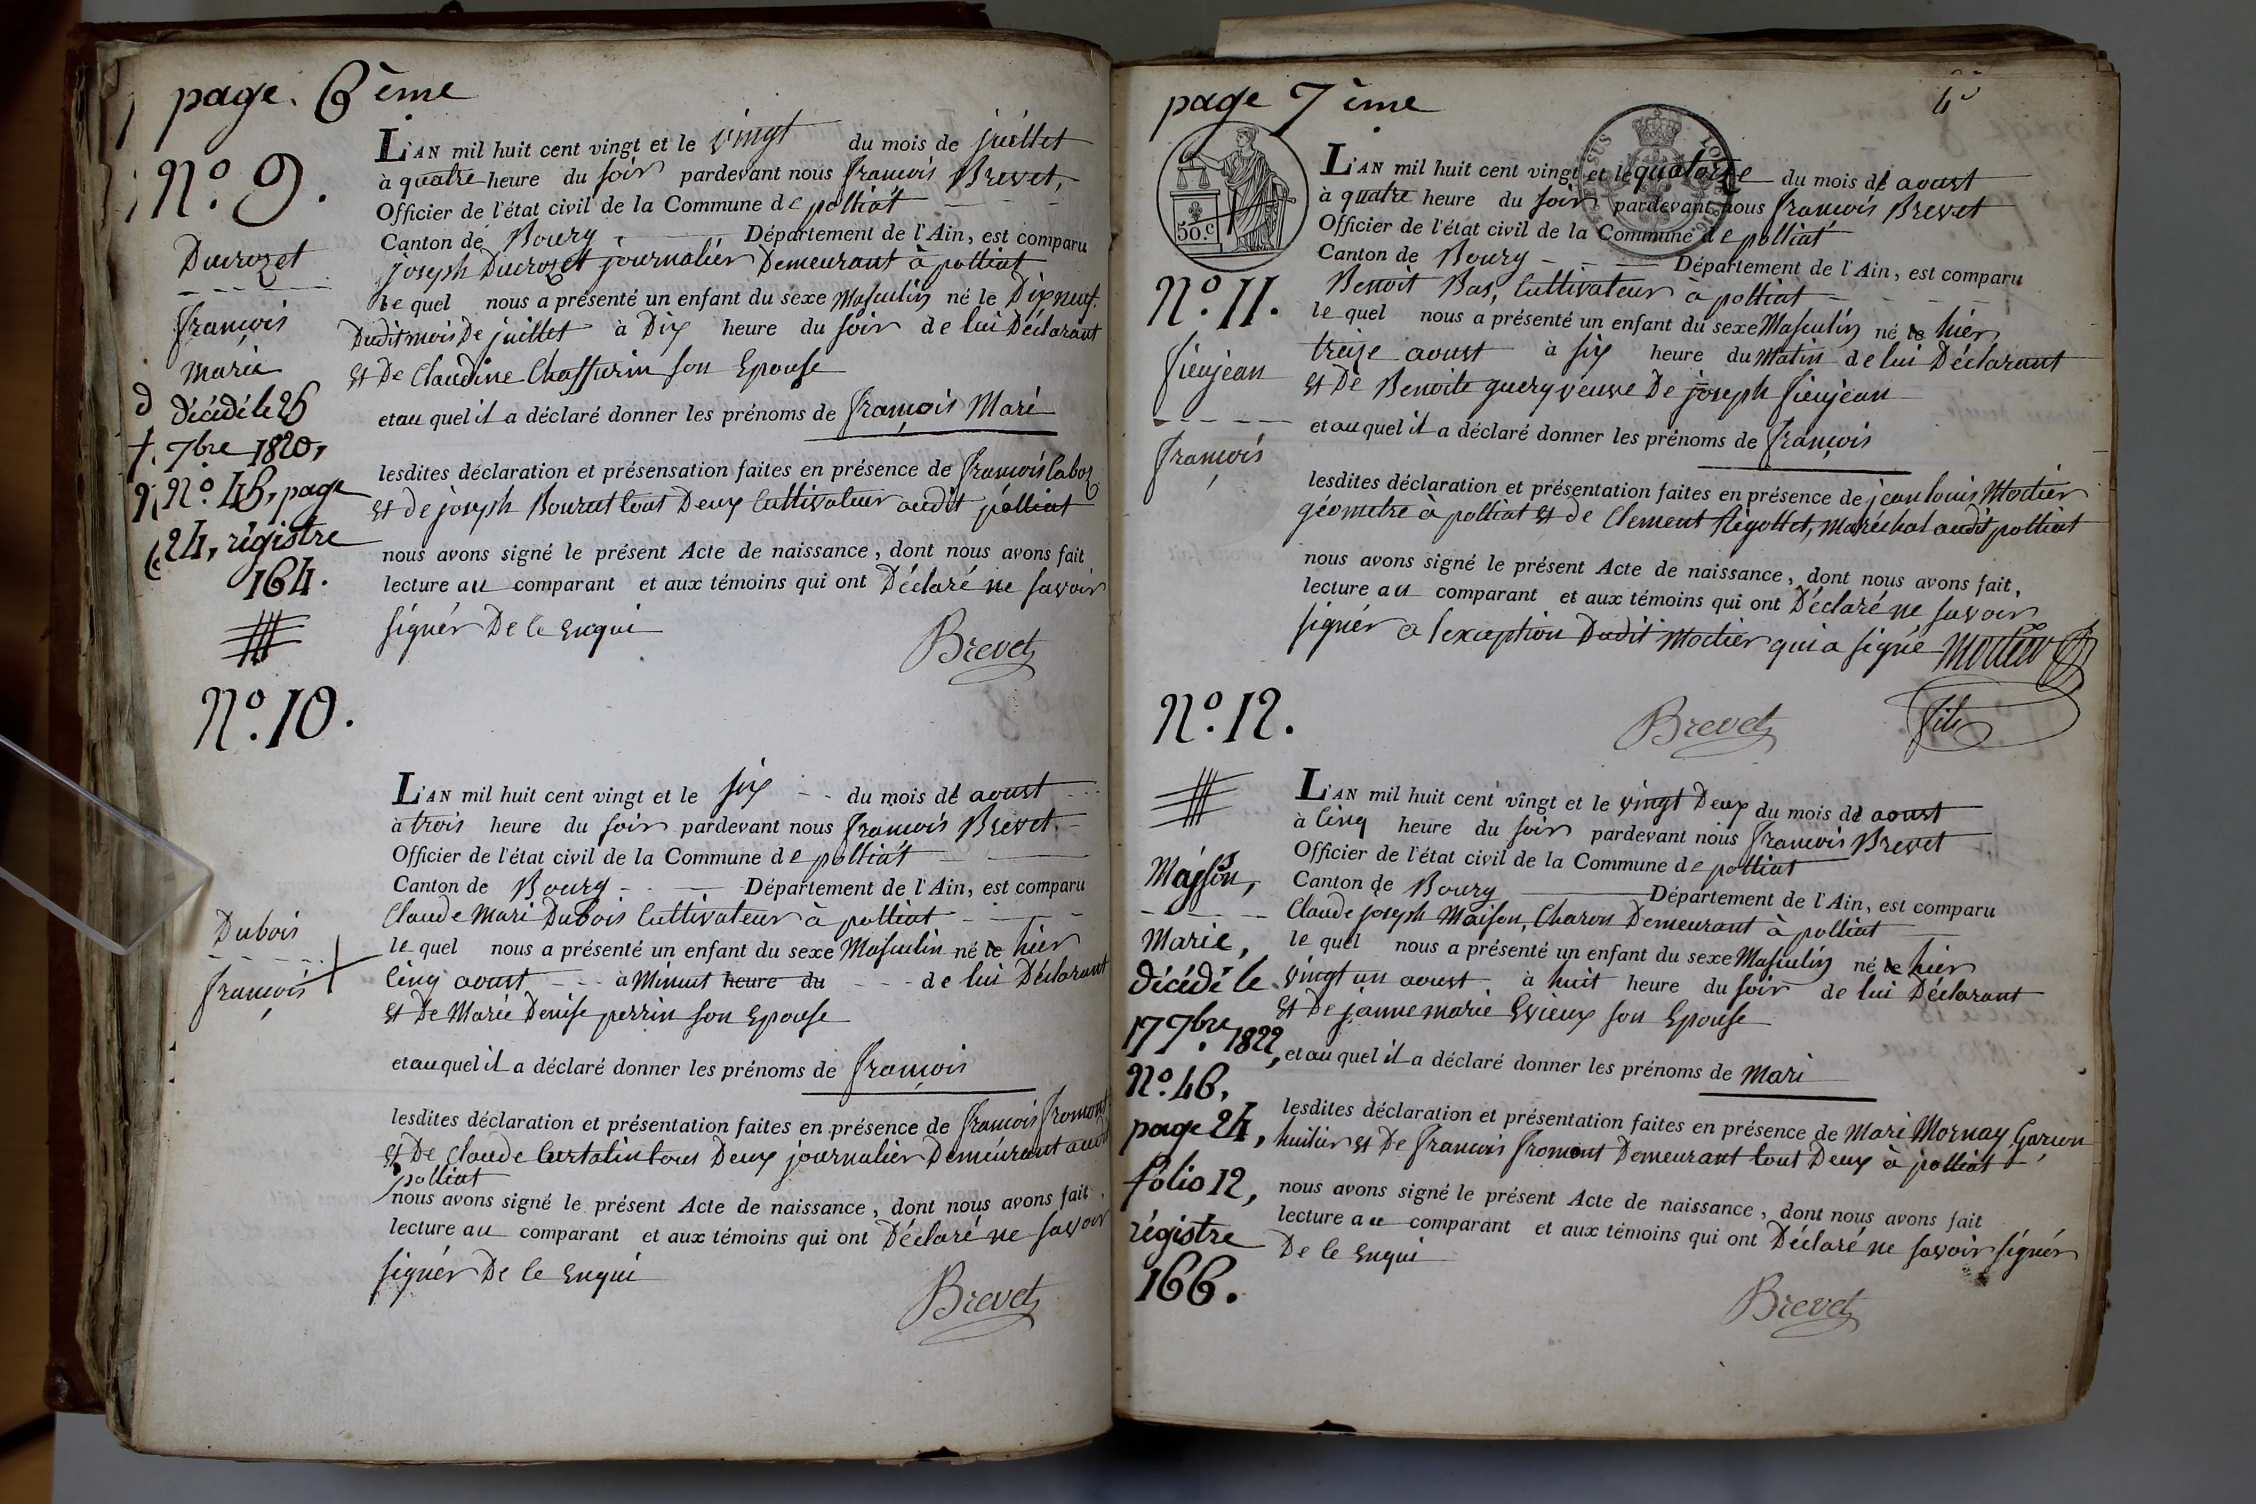 page. 6ème
N.º 9.
Ducrozet
françois
marie
décédé le 26
7bre 1820,
N.º 46, page
24, régistre
164.
L'AN mil huit cent vingt et le vingt du mois de juillet
à quatre heure du soir pardevant nous françois Brevet,
Officier de l'état civil de la Commune de polliat
Canton de Bourg Département de l'Ain, est comparu
joseph Ducrozet journalier Demeurant à polliat
le quel nous a présenté un enfant du sexe Masculin né le Dixneuf
Dudit mois De juillet à Dix heure du soir de lui Déclarant
et De Claudine Chassurin son Epouse
et au quel il a déclaré donner les prénoms de françois Mari
lesdites déclaration et présensation faites en présence de françois Caboz
et de joseph Bouzut tout Deux Cultivateur audit polliat
nous avons signé le présent Acte de naissance, dont nous avons fait
lecture au comparant et aux témoins qui ont Déclaré ne savoir
signér De ce Enqui
Brevet
N.º 10.
Dubois
françois
L'AN mil huit cent vingt et le six du mois de aoust
à trois heure du soir pardevant nous françois Brevet
Officier de l'état civil de la Commune de polliat
Canton de Bourg Département de l'Ain, est comparu
Claude Mari Dubois Cultivateur à polliat
le quel nous a présenté un enfant du sexe Masculin né le hier
Cinq aoust à Minuit heure du de lui Déclarant
et De Marie Denise perrin son Epouse
et au quel il a déclaré donner les prénoms de françois
lesdites déclaration et présentation faites en présence de françois fromont
et De Claude Curtalin tous Deux journalier Demeurant audit
polliat
nous avons signé le présent Acte de naissance, dont nous avons fait
lecture au comparant et aux témoins qui ont Déclaré ne savoir
signér De ce Enqui
Brevet
page 7ème
50.c
N.º 11.
fieujean
françois
L'AN mil huit cent vingt et le quatorze du mois de aoust
à quatre heure du soir pardevant nous françois Brevet
Officier de l'état civil de la Commune de polliat
Canton de Bourg Département de l'Ain, est comparu
Benoit Bas, Cultivateur à polliat
le quel nous a présenté un enfant du sexe Masculin né le hier
treize aoust à six heure du Matin de lui Déclarant
et De Benoite guery veuve De joseph fieujean
et au quel il a déclaré donner les prénoms de françois
lesdites déclaration et présentation faites en présence de jean louis Mortier
géometre à polliat et de Clement Rigollet, Maréchal audit polliat
nous avons signé le présent Acte de naissance, dont nous avons fait,
lecture au comparant et aux témoins qui ont Déclaré ne savoir
signér a lexception Dudit Mortier qui a signé Mortier
fils
Brevet
N.º 12.
Maisson,
Marie,
décédé le
17 7bre 1822,
N.º 46,
page 24,
folio 12,
régistre
166.
L'AN mil huit cent vingt et le vingt Deux du mois de aoust
à Cinq heure du soir pardevant nous françois Brevet
Officier de l'état civil de la Commune de polliat
Canton de Bourg Département de l'Ain, est comparu
Claude joseph Maison, Charon Demeurant à polliat
le quel nous a présenté un enfant du sexe Masculin né le hier
vingt un aoust à huit heure du soir de lui Déclarant
et De janne marie Evieux son Epouse
et au quel il a déclaré donner les prénoms de Mari
lesdites déclaration et présentation faites en présence de Mari Mornay Garçon
huilier et De françois fromont Demeurant tout Deux à polliat
nous avons signé le présent Acte de naissance, dont nous avons fait
lecture au comparant et aux témoins qui ont Déclaré ne savoir signér
De ce Enqui
Brevet